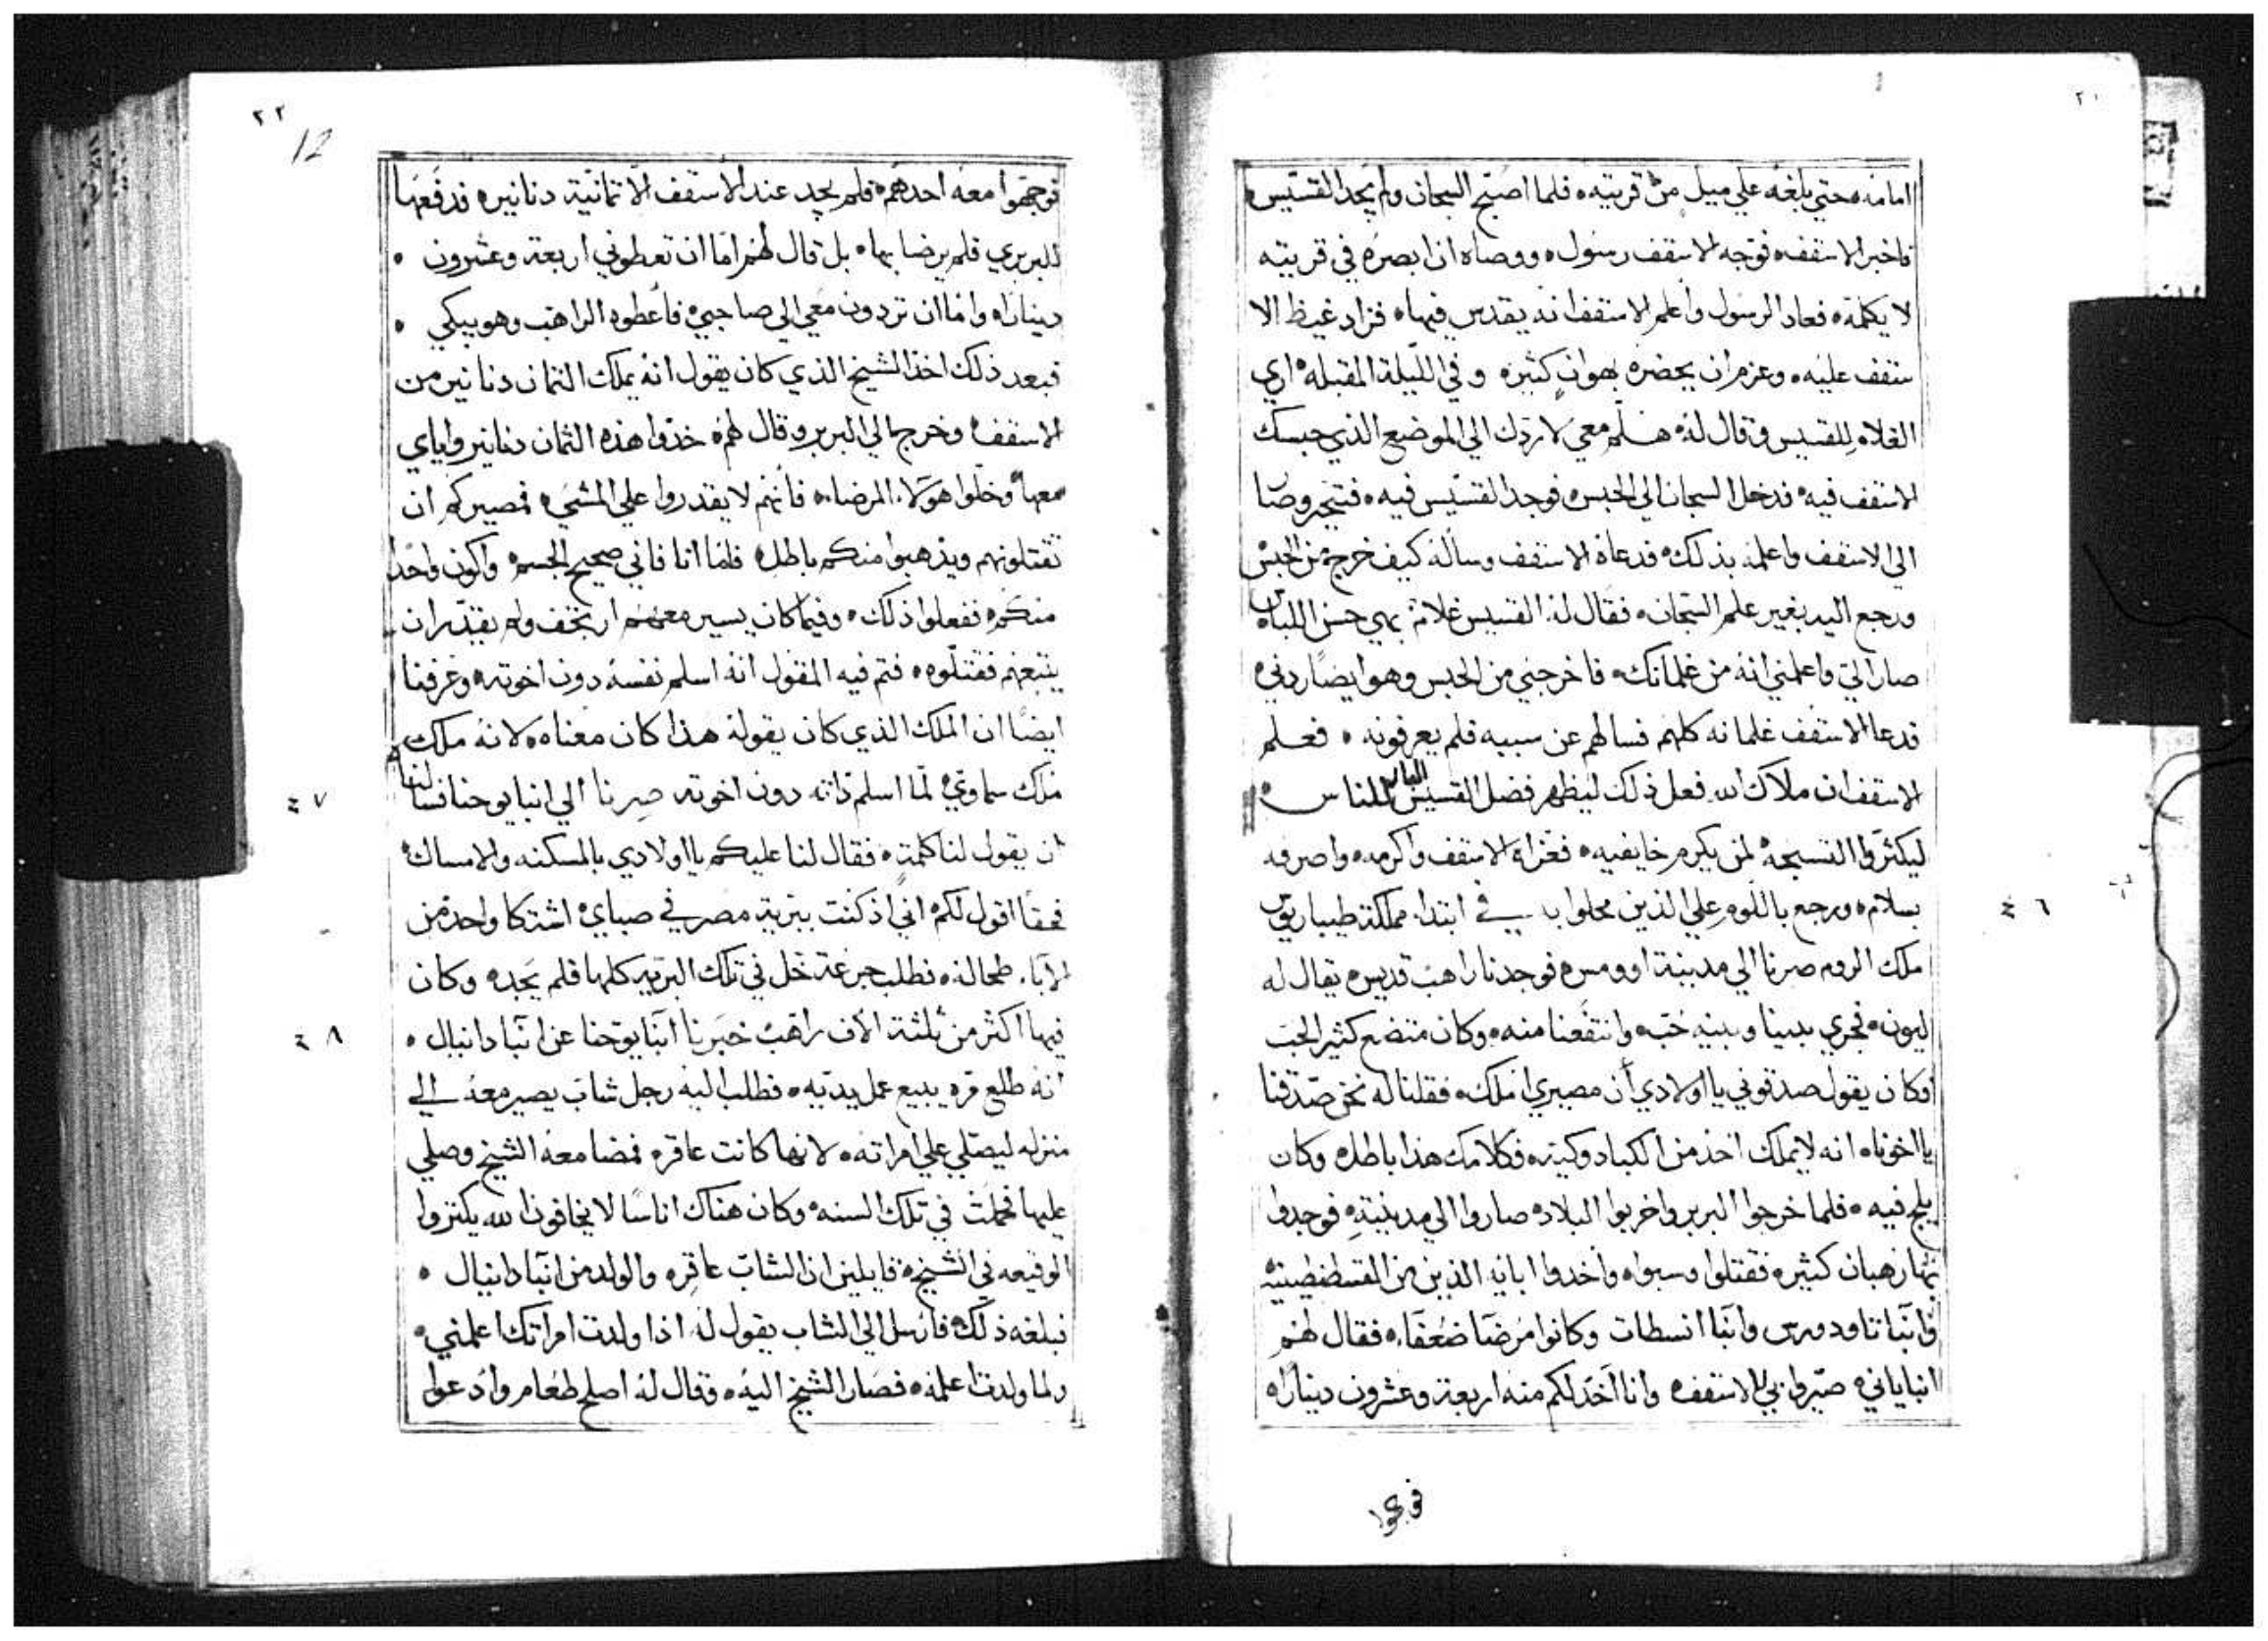 ٢١
امامه، حتي بلغه علي ميل من قريته، فلما اصبح السجان ولم يجد القسيس،
فاخبر الاسقف، فوجه الاسقف رسول، ووصاه ان ابصره في قريته
لا يكلمه، فعاد الرسول واعلم الاسقف انه يقدس فيها، فزاد غيظ الا
سقف عليه، وعزم ان يحضره بهوانٍ كثيره وفي الليلة المقبله اري
الغلام للقسيس وقال له، هلم معي لاردك الي الموضع الذي حبسك
الاسقف فيه، فدخل السجان الي الحبس، فوجد القسيس فيه، فتحير وصار
الي الاسقف واعلمه بذلك، فدعاه الاسقف وساله كيف خرج من الحبس
ورجع اليه بغير علم السجان، فقال له القسيس غلام بهي حسن اللباس
صار الي واعلمني انه من غلمانك، فاخرجني من الحبس وهو ايضاً ردني،
فدعا الاسقف غلمانه كلهم فسالهم عن سببه فلم يعرفونه، فعلم
الاسقف ان ملاك الله فعل ذلك ليظهر فضل القسيس البار للناس،
ليكثروا التسبحه لمن يكرم خايفيه، فعزاه الاسقف واكرمه، واصرفه
بسلام، ورجع باللوم علي الذين محلوا به في ابتدا مملكة طيباريوس
ملك الروم صرنا الي مدينة اوومس، فوجدنا راهب قديس، يقال له
ليون، فجري بيننا وبينه حُبّ، وانتفعنا منه، وكان متضع كثير الحب
وكان يقول صدقوني يا اولادي أن مصيري املك، فقلنا له نحن صدقنا
يا اخونا، انه لا يملك احد من الكبادوكيه، فكلامك هذا باطل، وكان
يلج فيه، فلما خرجوا البربر واخربوا البلاد، صاروا الي مدينتهِ، فوجدوا
بها رهبان كثيره فقتلوا وسبوا، واخدوا ابايه الذين من القسطنطينيه
فانبا تاودورس وانبا انسطات وكانوا مرضا ضعفاء، فقال لهم
انبا ياني، صيروا بي الي الاسقف، وانا آخد لكم منه اربعة وعشرون ديناراً،
فوجهوا
٤٦
٢٢
12
فوجهوا معه احدهم، فلم يجد عند الاسقف الا ثمانية دنانير، فدفعها
للبربري فلم يرضا بها، بل قال لهم اما ان تعطوني اربعة وعشرون،
ديناراً، واما ان تردون معي الي صاحبي، فاعطوه الراهب وهو يبكي،
فبعد ذلك اخذ الشيخ الذي كان يقول انه يملك الثمان دنانير من
الاسقف، وخرج الي البربر وقال لهم، خدوا هذه الثمان دنانير واياي
معها، وخلّوا هولاء المرضا، فانهم لا يقدروا علي المشي، فمصيركم ان
تقتلونهم ويذهبوا منكم باطل، فاما انا فاني صحيح الجسم، واكون واحداً
منكم، ففعلوا ذلك، وفيما كان يسير معهم ارتخف ولم يقدر ان
يتبعهم فقتلوه، فتم فيه المقول انه اسلم نفسه دون اخوته، وعرفنا
ايضاً ان الملك الذي كان يقوله هذا كان معناه، لانه ملك
ملك سماوي، لما اسلم ذاته دون اخوته، صرنا الي انبا يوحنا فسالناه
ان يقول لنا كلمة، فقال لنا عليكم يا اولادي بالمسكنه والامساك،
فحقاً اقول لكم، اني اذ كنت ببرية مصر في صباي، اشتكا واحد من
الاباء طحاله، فطلب جرعة خل في تلك البريه كلها فلم يجده وكان
فيها اكثر من ثلثة الاف راهب خبرنا انبا يوحنا عن انبا دانيال،
انه طلع مره يبيع عمل يديه، فطلب اليه رجل شاب يصير معه الي
منزله ليصلي علي امراته، لانها كانت عاقره، فمضا معه الشيخ وصلي
عليها فحملت في تلك السنه، وكان هناك اناساً لا يخافون الله يكثروا
الوقيعه في الشيخ، قايلين ان الشاب عاقر، والولد من انبا دانيال،
فبلغه ذلك، فارسل الي الشاب يقول له اذا ولدت امراتك اعلمني،
ولما ولدت اعلمه، فصار الشيخ اليه، وقال له اصلح طعام وادعوا
٤٧
٤٨